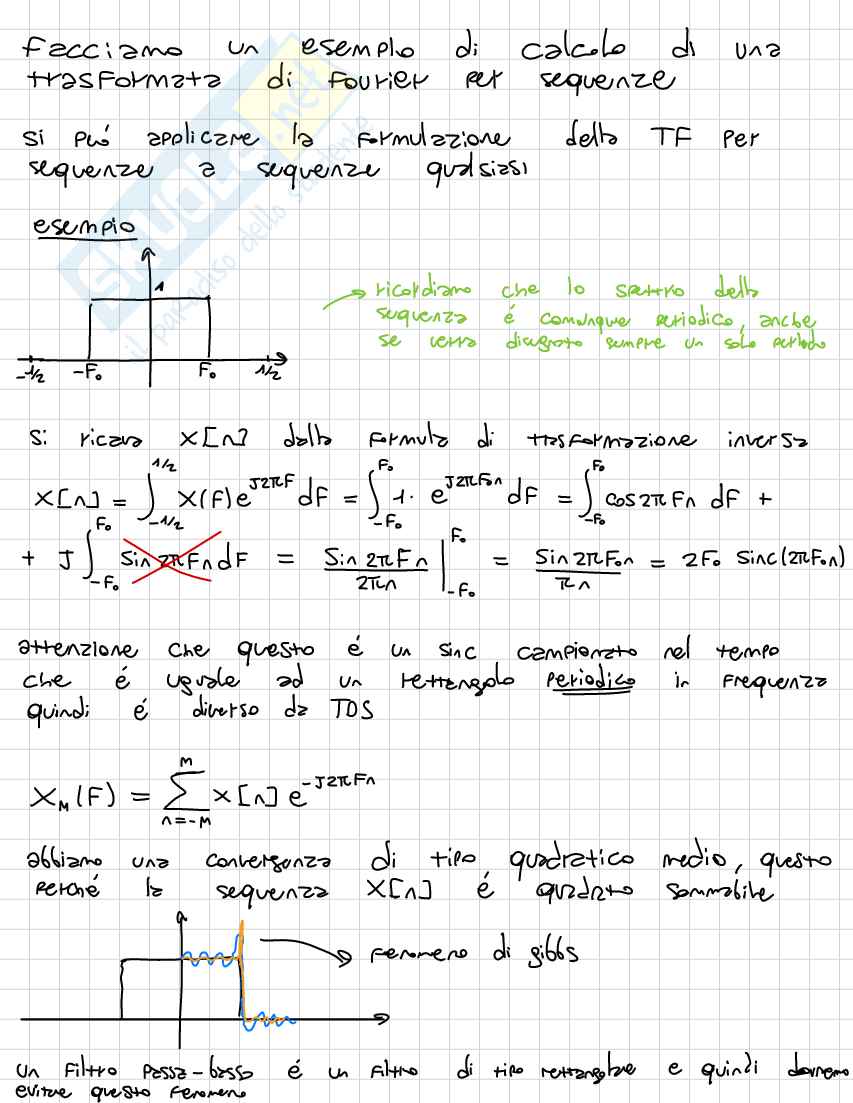 facciamo un esempio di calcolo di una
trasformata di Fourier per sequenze
si può applicare la formulazione della TF per
sequenze a sequenze qualsiasi
esempio
1
-1/2 -F₀ F₀ 1/2
ricordiamo che lo spettro della
sequenza é comunque periodico, anche
se verrà disegnato sempre un solo periodo
si ricava x[n] dalla formula di trasformazione inversa
x[n] = ∫_{-1/2}^{1/2} X(F) e^{J2πF} dF = ∫_{-F₀}^{F₀} 1· e^{J2πF₀n} dF = ∫_{-F₀}^{F₀} cos2πFn dF +
+ J ∫_{-F₀}^{F₀} sin 2πFn dF = sin 2πFn / 2πn |_{-F₀}^{F₀} = sin 2πF₀n / πn = 2F₀ sinc(2πF₀n)
attenzione che questo é un sinc campionato nel tempo
che é uguale ad un rettangolo periodico in frequenza
quindi é diverso da TDS
X_M(F) = Σ_{n=-M}^{M} x[n] e^{-J2πFn}
abbiamo una convergenza di tipo quadratico medio, questo
perché la sequenza x[n] é quadrato sommabile
fenomeno di gibbs
un filtro passa-basso é un filtro di tipo rettangolare e quindi dovremo
evitare questo fenomeno
SKUOLA.net
il paradiso dello studente